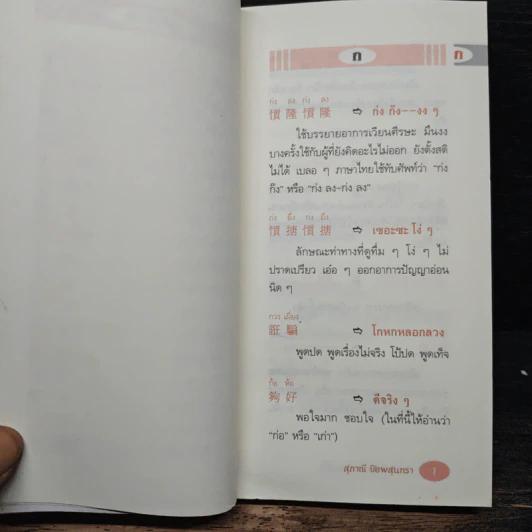 ก
ก
ก่ง ลง ก่ง ลง
憤 隆 憤 隆 ⇨ ก่ง ก๊ง--งง ๆ
ใช้บรรยายอาการเวียนศีรษะ มึนงง
บางครั้งใช้กับผู้ที่ยังคิดอะไรไม่ออก ยังตั้งสติ
ไม่ได้ เบลอ ๆ ภาษาไทยใช้ทับศัพท์ว่า "ก่ง
ก๊ง" หรือ "ก่ง ลง-ก่ง ลง"
⇨ เซอะซะ โง่ ๆ
ลักษณะท่าทางที่ดูทึ่ม ๆ โง่ ๆ ไม่
ปราดเปรียว เอ๋อ ๆ ออกอาการปัญญาอ่อน
นิด ๆ
誑 騙 ⇨ โกหกหลอกลวง
พูดปด พูดเรื่องไม่จริง โป้ปด พูดเท็จ
ก้อ ห้อ
夠 好 ⇨ ดีจริง ๆ
พอใจมาก ชอบใจ (ในที่นี้ให้อ่านว่า
"ก่อ" หรือ "เก่า")
สุภาณี ปิยพสุนทรา 1